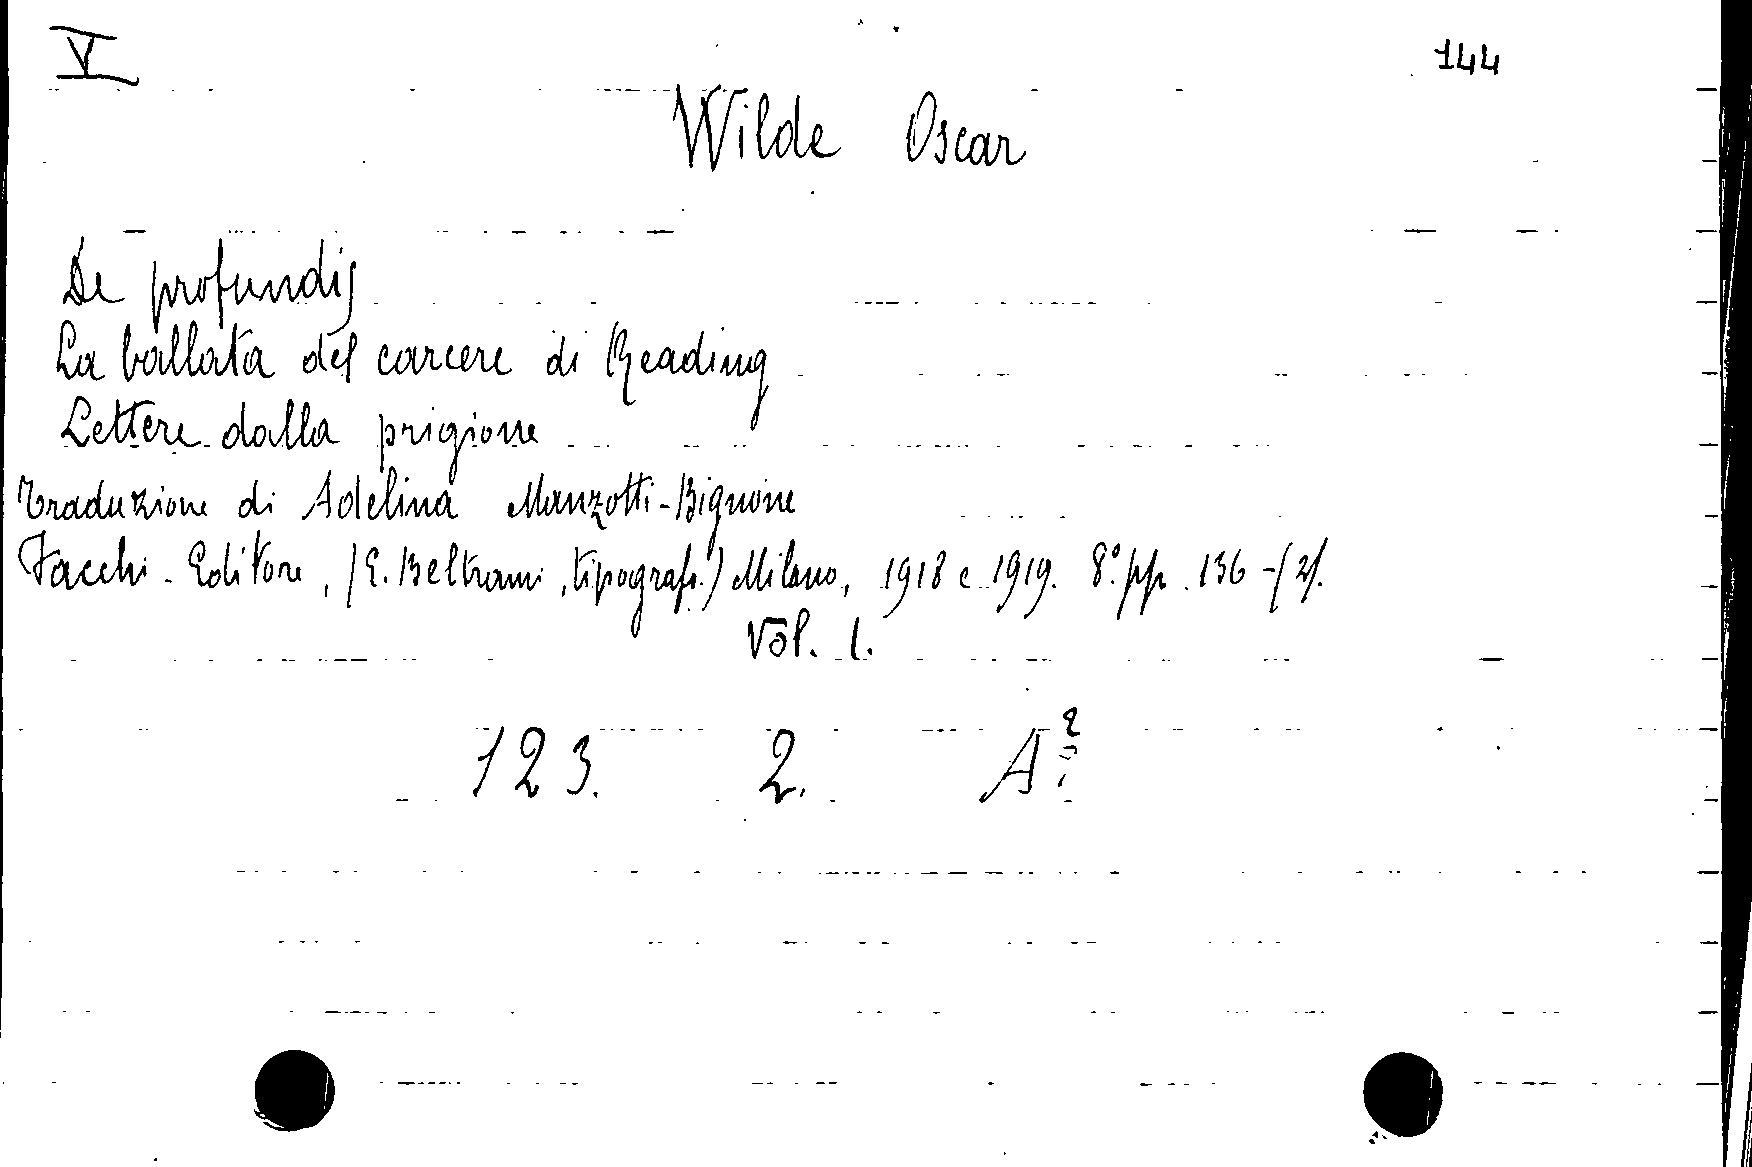 V
144
Wilde Oscar
De profundis
La ballata del carcere di Reading
Lettere dalla prigione
Traduzione di Adelina Manzotti-Bignone
Facchi - Editore, (E. Beltrami, tipograf.) Milano, 1918 e 1919. 8.° pp. 136 - (2).
Vol. 1.
123. 2. A²